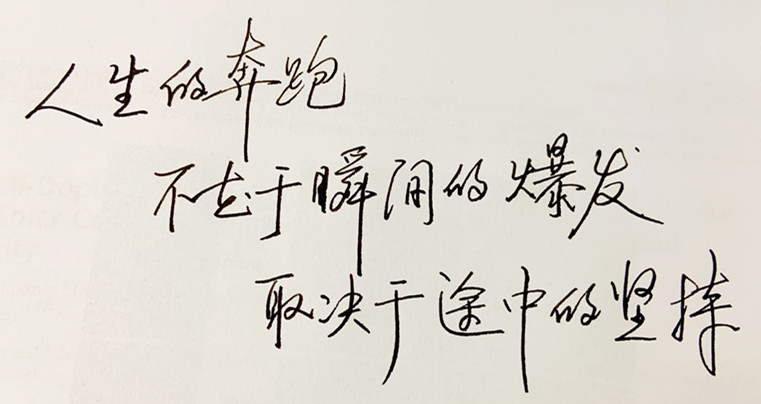 人生的奔跑
不在于瞬间的爆发
取决于途中的坚持